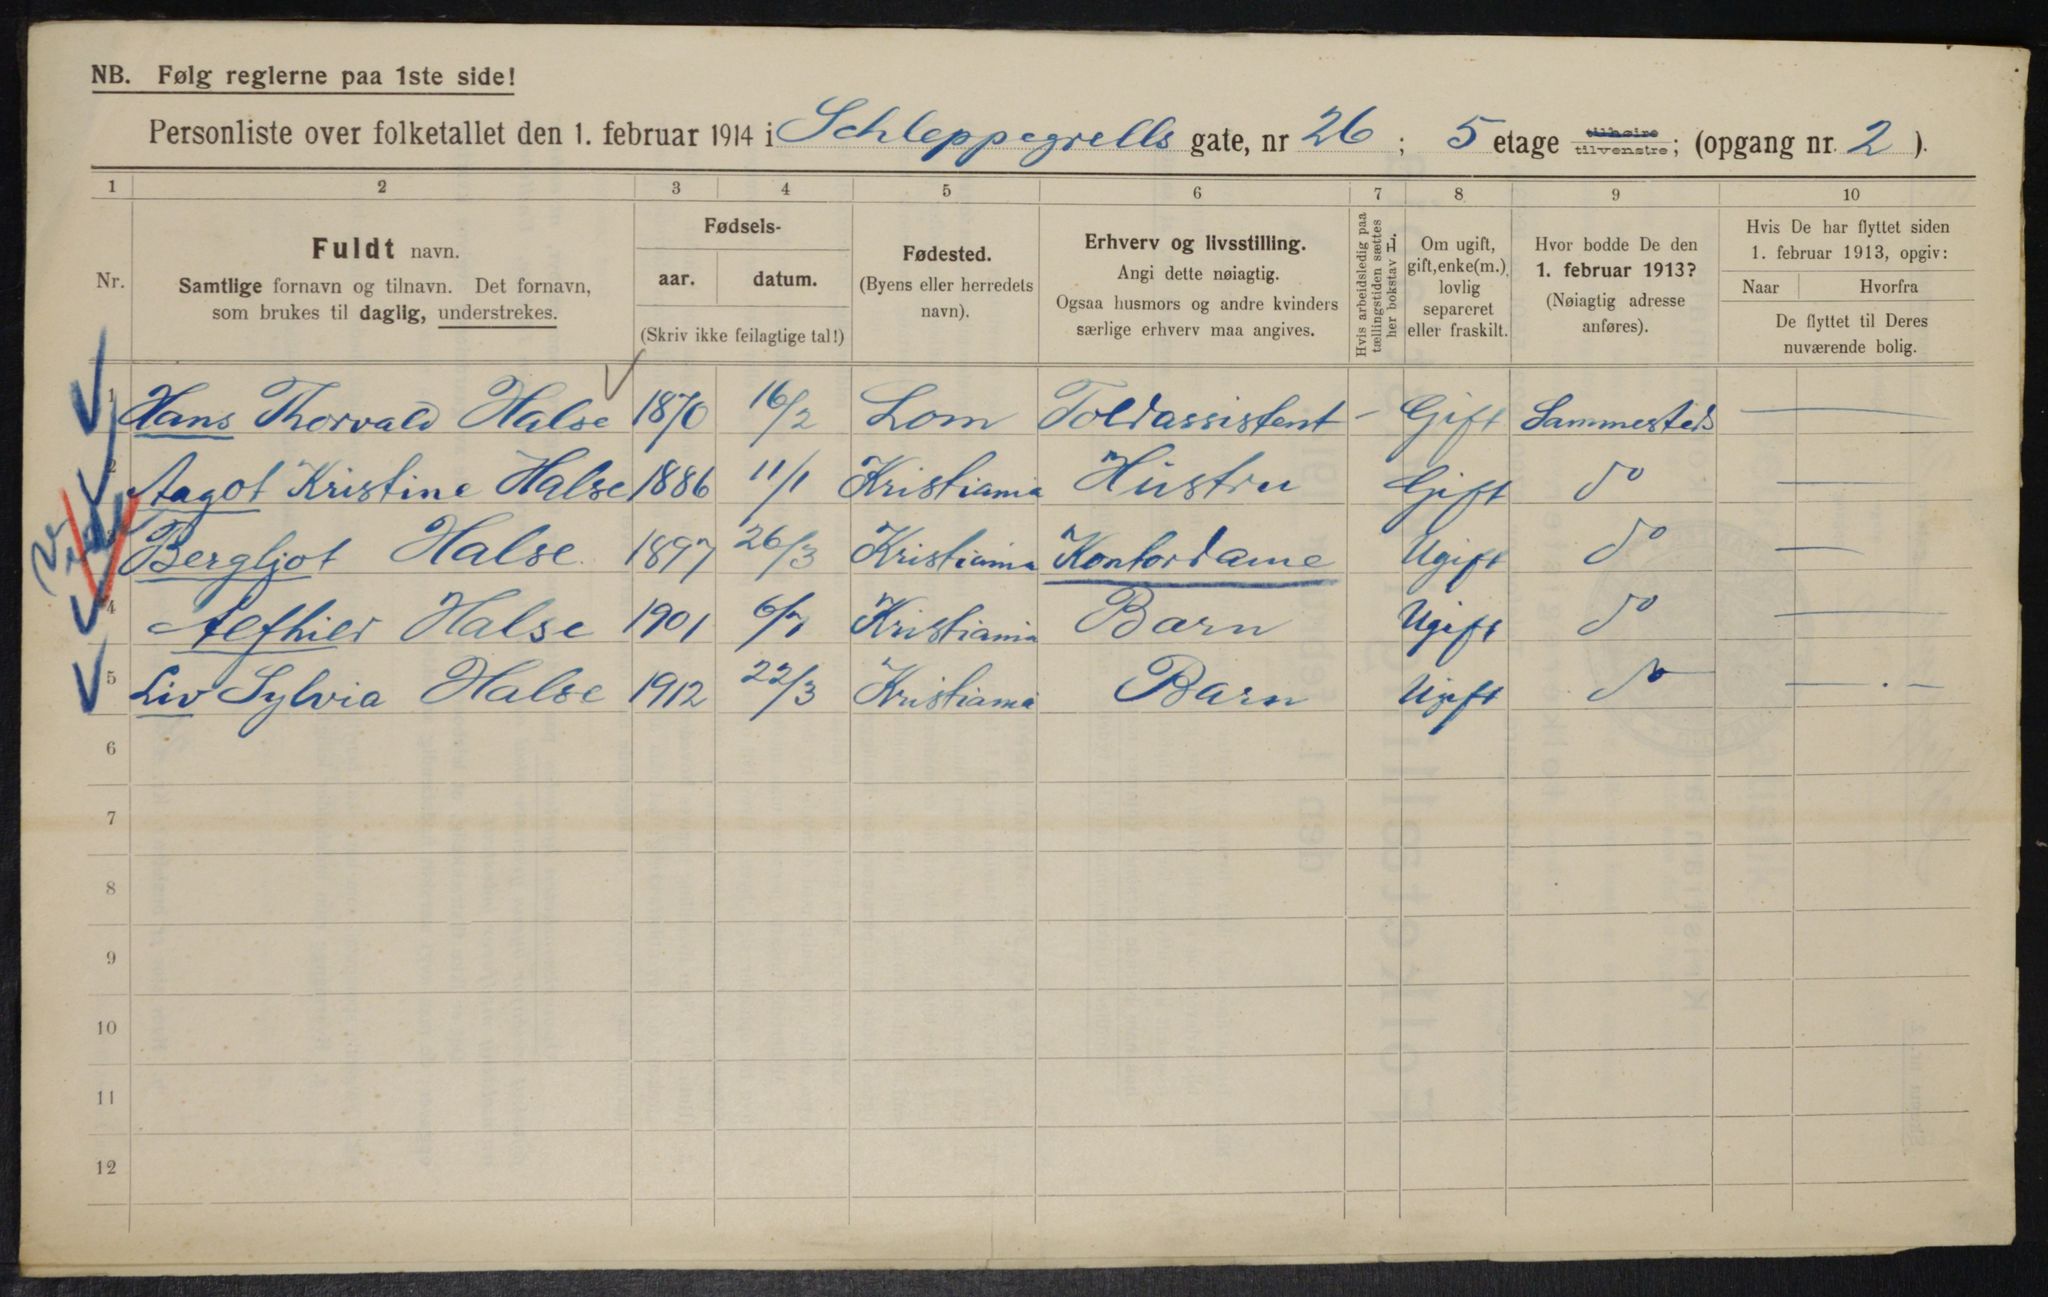 NB. Følg reglerne paa 1ste side!
Personliste over folketallet den 1. februar 1914 i Schleppegrells gate, nr 26 ; 5 etage tilhøire tilvenstre; (opgang nr. 2 ).
1 2 3 4 5 6 7 8 9 10
Nr.
Fuldt navn.
Samtlige fornavn og tilnavn. Det fornavn,
som brukes til daglig, understrekes.
Fødsels-
aar. datum.
(Skriv ikke feilagtige tal!)
Fødested.
(Byens eller herredets
navn).
Erhverv og livsstilling.
Angi dette nøiagtig.
Ogsaa husmors og andre kvinders
særlige erhverv maa angives.
Hvis arbeidsledig paa
tællingstiden sættes
her bokstav L.
Om ugift,
gift, enke(m.),
lovlig
separeret
eller fraskilt.
Hvor bodde De den
1. februar 1913?
(Nøiagtig adresse
anføres).
Hvis De har flyttet siden
1. februar 1913, opgiv:
Naar Hvorfra
De flyttet til Deres
nuværende bolig.
1 Hans Thorvald Halse 1870 16/2 Lom Toldassistent - Gift Sammesteds —
2 Aagot Kristine Halse 1886 11/1 Kristiania Hustru Gift do —
3 Bergljot Halse 1897 26/3 Kristiania Kontordame Ugift do —
4 Alfhild Halse 1901 Kristiania Barn Ugift do —
5 Liv Sylvia Halse 1912 22/3 Kristiania Barn Ugift do — . —
6
7
8
9
10
11
12